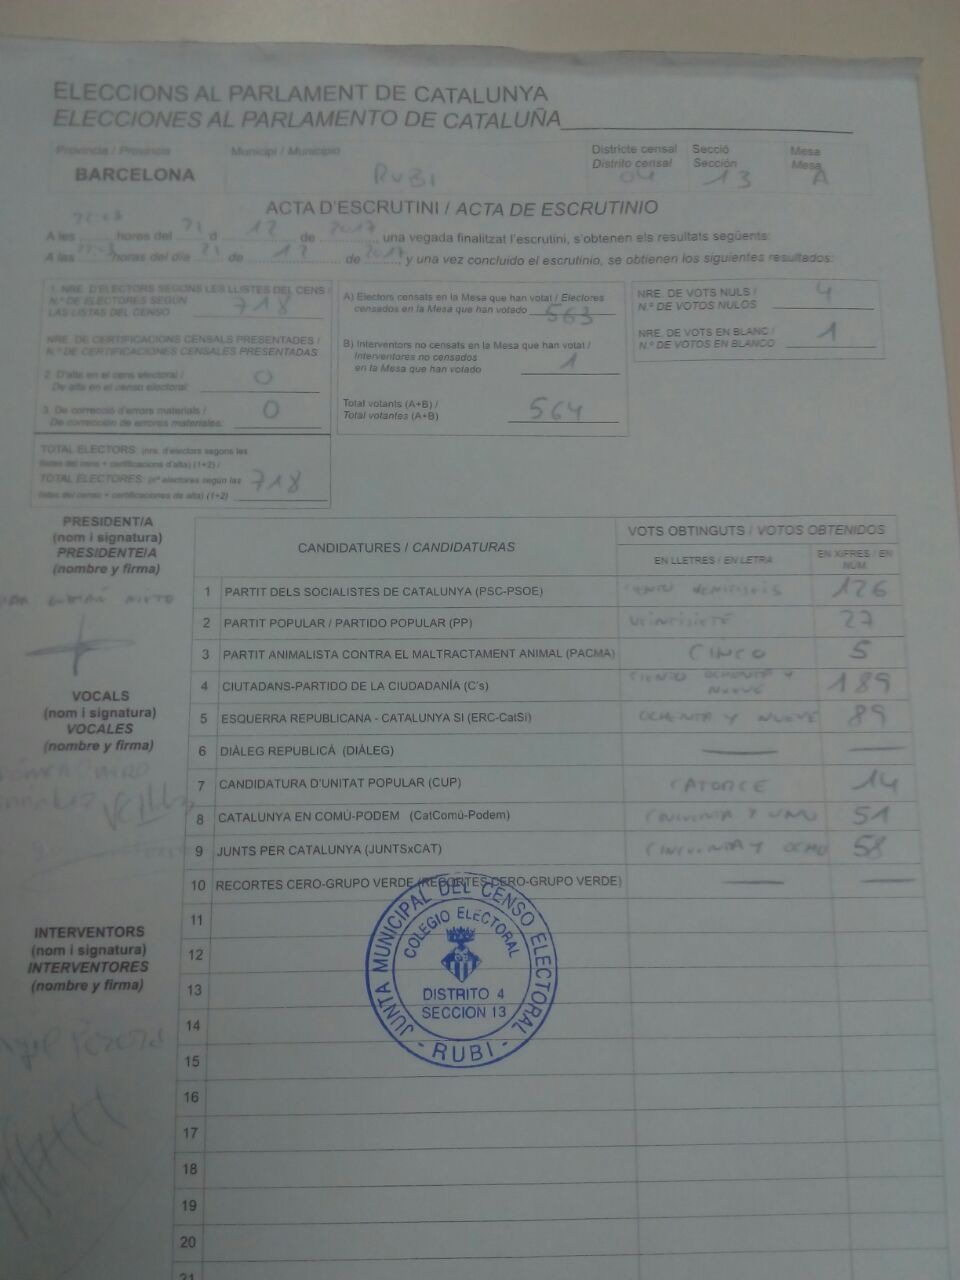 ELECCIONS AL PARLAMENT DE CATALUNYA
ELECCIONES AL PARLAMENTO DE CATALUÑA
Província / Provincia
BARCELONA
Municipi / Municipio
RUBI
Districte censal
Distrito censal
04
Secció
Sección
13
Mesa
Mesa
A
ACTA D'ESCRUTINI / ACTA DE ESCRUTINIO
A les 22:03 hores del 21 d 12 de 2017, una vegada finalitzat l'escrutini, s'obtenen els resultats següents:
A las 22:03 horas del día 21 de 12 de 2017, y una vez concluido el escrutinio, se obtienen los siguientes resultados:
1. NRE. D'ELECTORS SEGONS LES LLISTES DEL CENS /
N.º DE ELECTORES SEGÚN
LAS LISTAS DEL CENSO
718
NRE. DE CERTIFICACIONS CENSALS PRESENTADES /
N.º DE CERTIFICACIONES CENSALES PRESENTADAS:
2. D'alta en el cens electoral /
De alta en el censo electoral:
0
3. De correcció d'errors materials /
De corrección de errores materiales:
0
TOTAL ELECTORS: (nre. d'electors segons les
llistes del cens + certificacions d'alta) (1+2) /
TOTAL ELECTORES: (nº electores según las
listas del censo + certificaciones de alta) (1+2)
718
A) Electors censats en la Mesa que han votat / Electores
censados en la Mesa que han votado
563
B) Interventors no censats en la Mesa que han votat /
Interventores no censados
en la Mesa que han votado
1
Total votants (A+B) /
Total votantes (A+B)
564
NRE. DE VOTS NULS /
N.º DE VOTOS NULOS
4
NRE. DE VOTS EN BLANC /
N.º DE VOTOS EN BLANCO
1
PRESIDENT/A
(nom i signatura)
PRESIDENTE/A
(nombre y firma)
NIETO
VOCALS
(nom i signatura)
VOCALES
(nombre y firma)
INTERVENTORS
(nom i signatura)
INTERVENTORES
(nombre y firma)
CANDIDATURES / CANDIDATURAS
VOTS OBTINGUTS / VOTOS OBTENIDOS
EN LLETRES / EN LETRA
EN XIFRES / EN NÚM.
1 PARTIT DELS SOCIALISTES DE CATALUNYA (PSC-PSOE) 126
2 PARTIT POPULAR / PARTIDO POPULAR (PP) VEINTISIETE 27
3 PARTIT ANIMALISTA CONTRA EL MALTRACTAMENT ANIMAL (PACMA) CINCO 5
4 CIUTADANS-PARTIDO DE LA CIUDADANÍA (C's) CIENTO OCHENTA Y NUEVE 189
5 ESQUERRA REPUBLICANA - CATALUNYA SI (ERC-CatSí) OCHENTA Y NUEVE 89
6 DIÀLEG REPUBLICÀ (DIÀLEG) — —
7 CANDIDATURA D'UNITAT POPULAR (CUP) CATORCE 14
8 CATALUNYA EN COMÚ-PODEM (CatComú-Podem) CINCUENTA Y UNO 51
9 JUNTS PER CATALUNYA (JUNTSxCAT) CINCUENTA Y OCHO 58
10 RECORTES CERO-GRUPO VERDE (RECORTES CERO-GRUPO VERDE) — —
11
12
13
14
15
16
17
18
19
20
21
JUNTA MUNICIPAL DEL CENSO ELECTORAL
COLEGIO ELECTORAL
DISTRITO 4
SECCION 13
- RUBI -